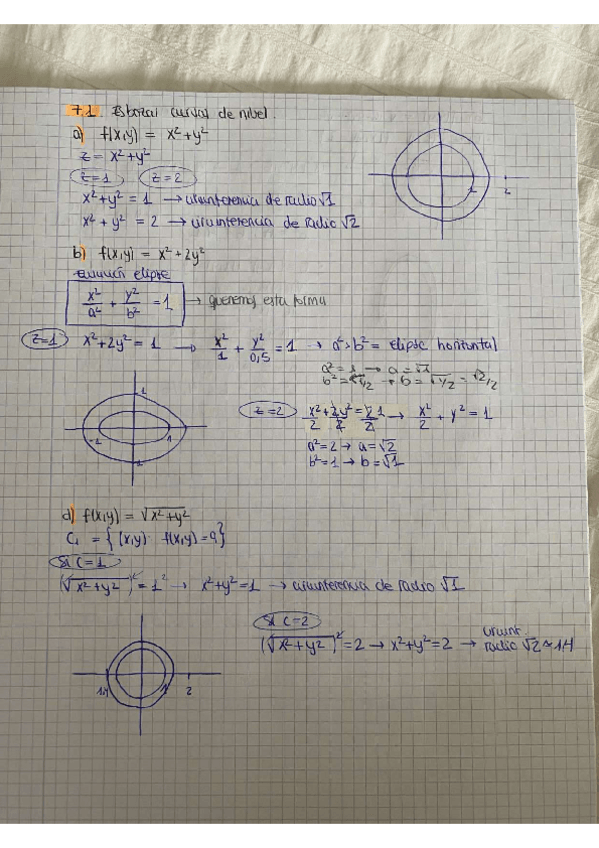 7.1 Esbozar curvas de nivel.
a) f(x,y) = x²+y²
z = x²+y²
z=1 z=2
x²+y² = 1 → circunferencia de radio √1
x²+y² = 2 → circunferencia de radio √2
2
b) f(x,y) = x²+2y²
elipse
x²/a² + y²/b² = 1 → queremos esta forma
z=1 x²+2y² = 1 → x²/1 + y²/0,5 = 1 → a²>b² = elipse horizontal
a²=1 → a=√1
b²=1/2 → b=√1/2 = √2/2
1
-1 1
z=2 x²/2 + 2y²/2 = 2/2 1 → x²/2 + y² = 1
a²=2 → a=√2
b²=1 → b=√1
d) f(x,y) = √x²+y²
Si C=1
(√x²+y²)² = 1² → x²+y²=1 → circunferencia de radio √1
Si C=2
(√x²+y²)² = 2 → x²+y²=2 → circunf. radio √2 ≈ 1,4
1,4 1 2